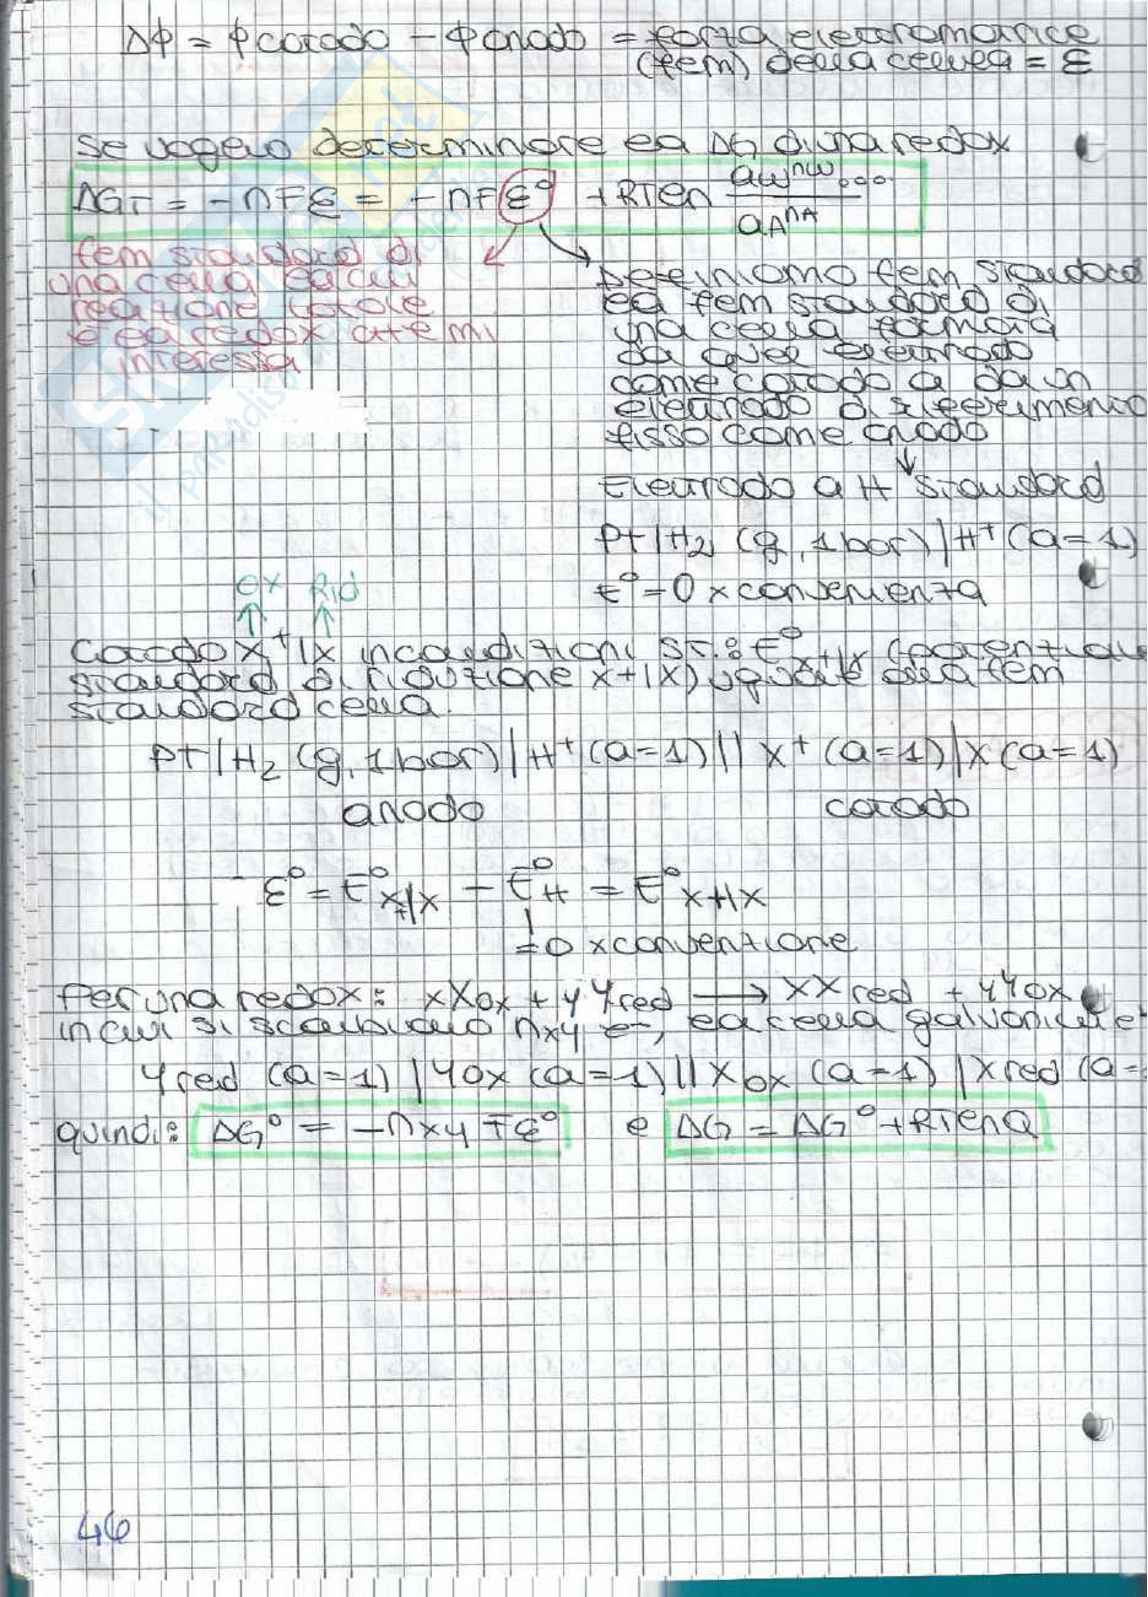 Δϕ = ϕcatodo - ϕanodo = forza elettromotrice
(fem) della cella = ε
se voglio determinare la ΔG di una redox
ΔGT = -nFε = -nFε° + RTln aW^nW... / aA^nA
fem standard di
una cella la cui
reazione totale
è la redox che mi
interessa
Definiamo fem standard
la fem standard di
una cella formata
da quel elettrodo
come catodo a da un
elettrodo di riferimento
fisso come anodo
↓
Elettrodo a H standard
Pt|H2 (g, 1bar)|H+ (a=1)
E°=0 x convenienza
OX Rid
Catodo X+|X in condizioni ST.: E°X+|X (potenziale
standard di riduzione X+|X) uguale alla fem
standard cella.
Pt|H2 (g, 1bar)|H+ (a=1)||X+ (a=1)|X (a=1)
anodo catodo
ε° = E°X+|X - E°H = E°X+|X
=0 x convenzione
Per una redox: xXox + yYred → xXred + yYox
in cui si scambiano nxy e-, la cella galvanica è
Yred (a=1)|Yox (a=1)||Xox (a=1)|Xred (a=
quindi: ΔG° = -nxyFε° e ΔG = ΔG° + RTlnQ
46